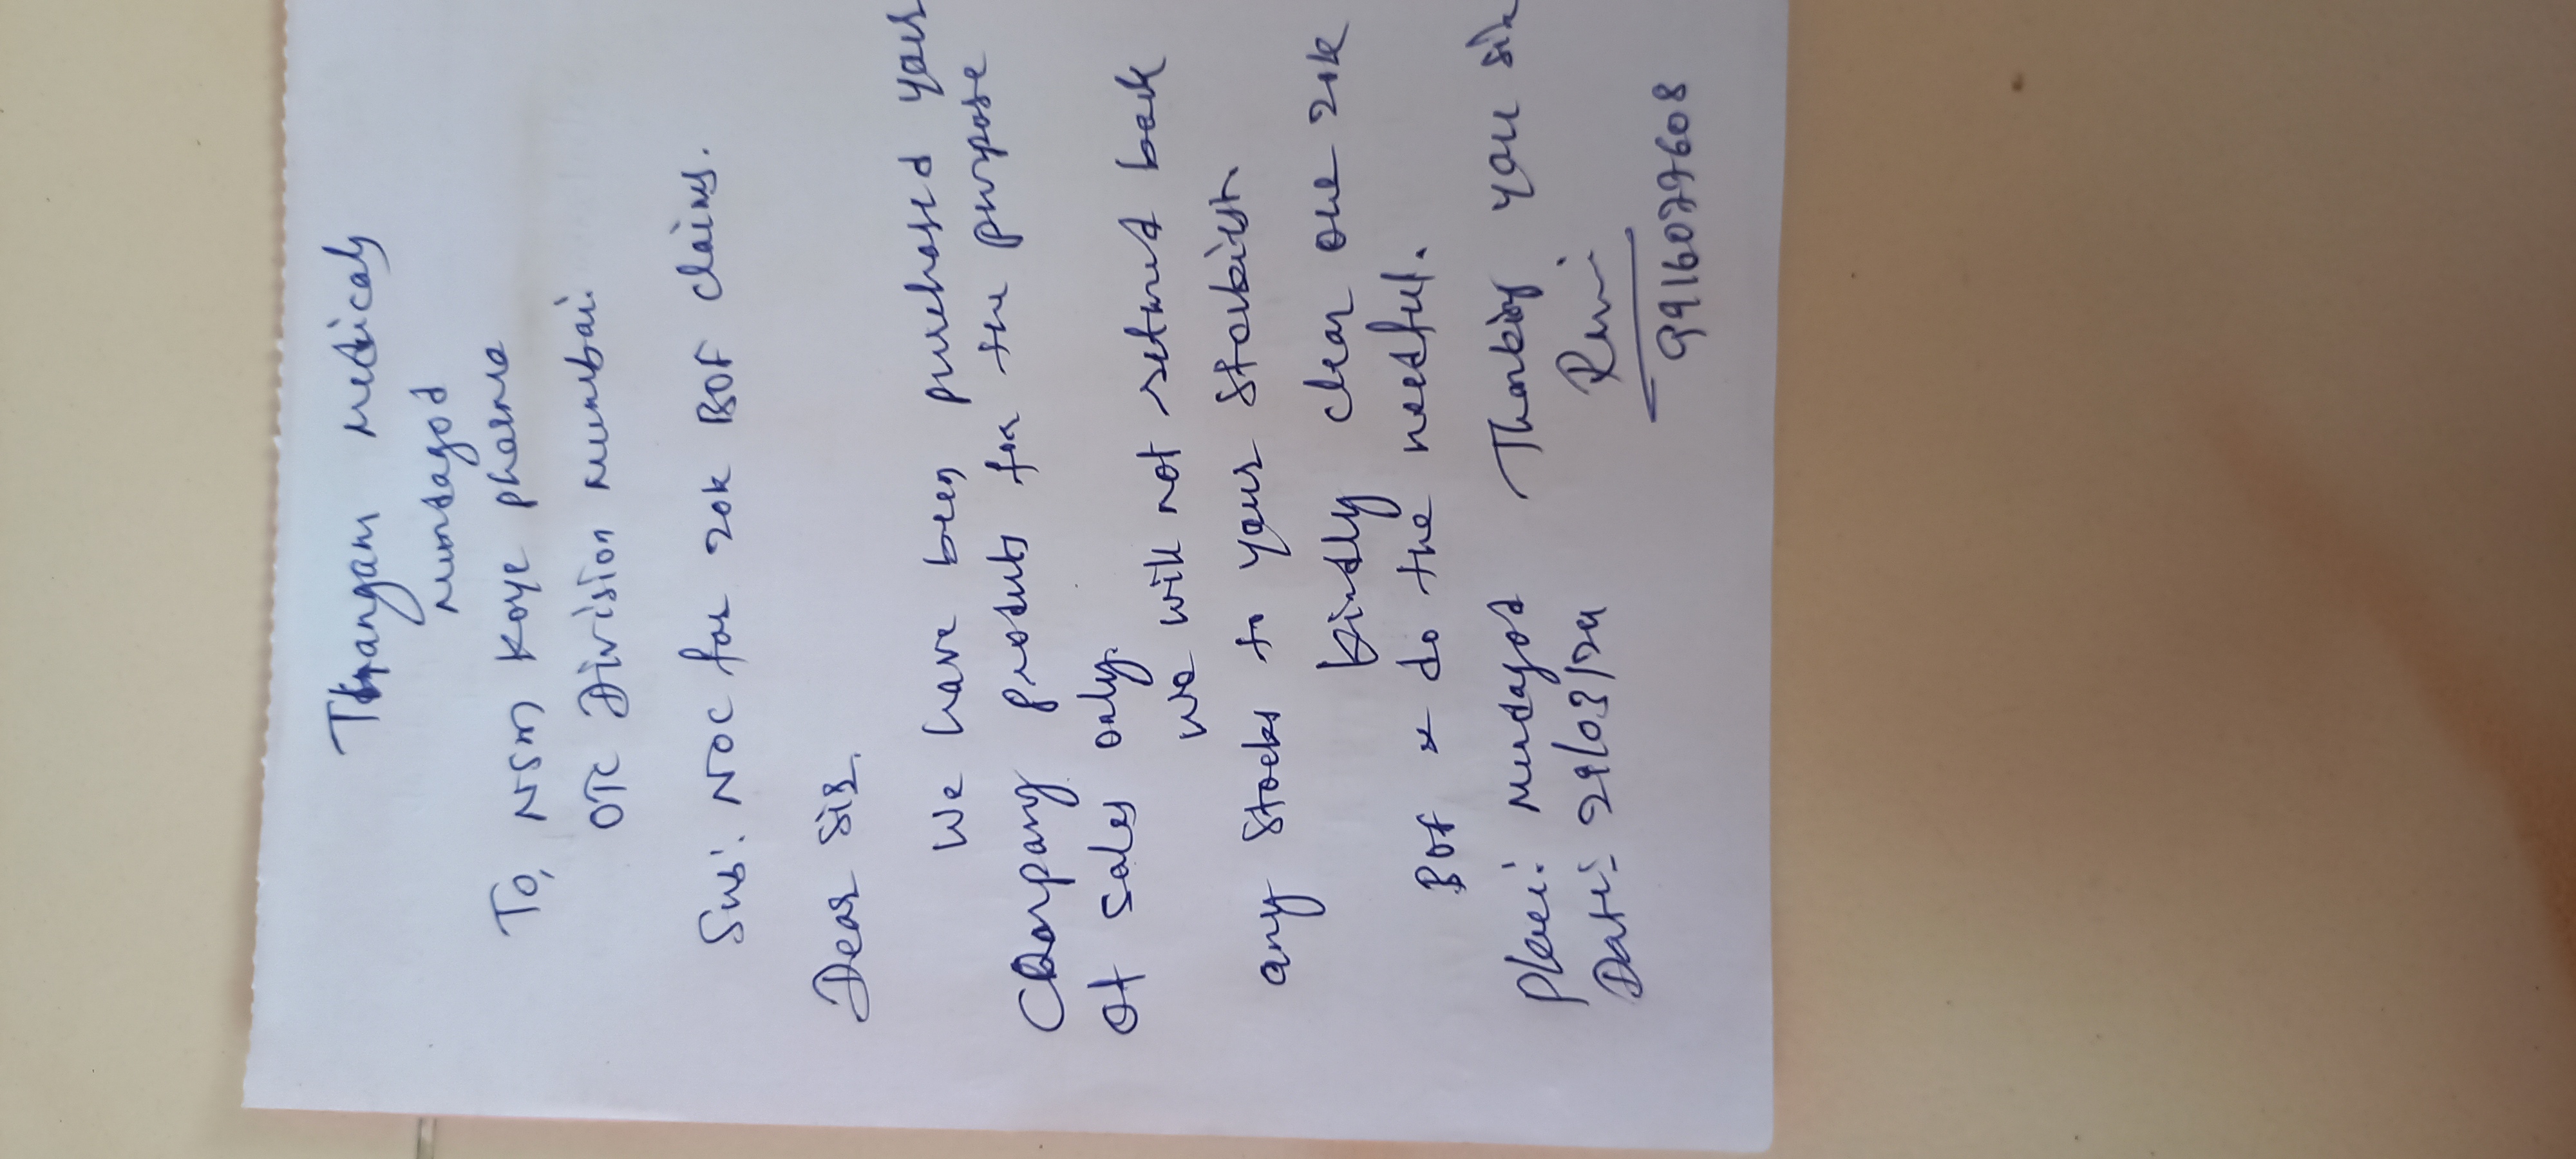 Thangam Medicals
Mundagod
To, NSM Koye pharma
OTC Division Mumbai.
Sub: NOC for 20k BOF Claims.
Dear Sir.
We have been purchased your
Company products for the purpose
Of Sales only.
We will not returned back
any Stocks to your Stockist.
Kindly clear our 20k
BOF & do the needful.
Place: Mundagod Thanking you Sir
Date:- 29/03/24
9916077608